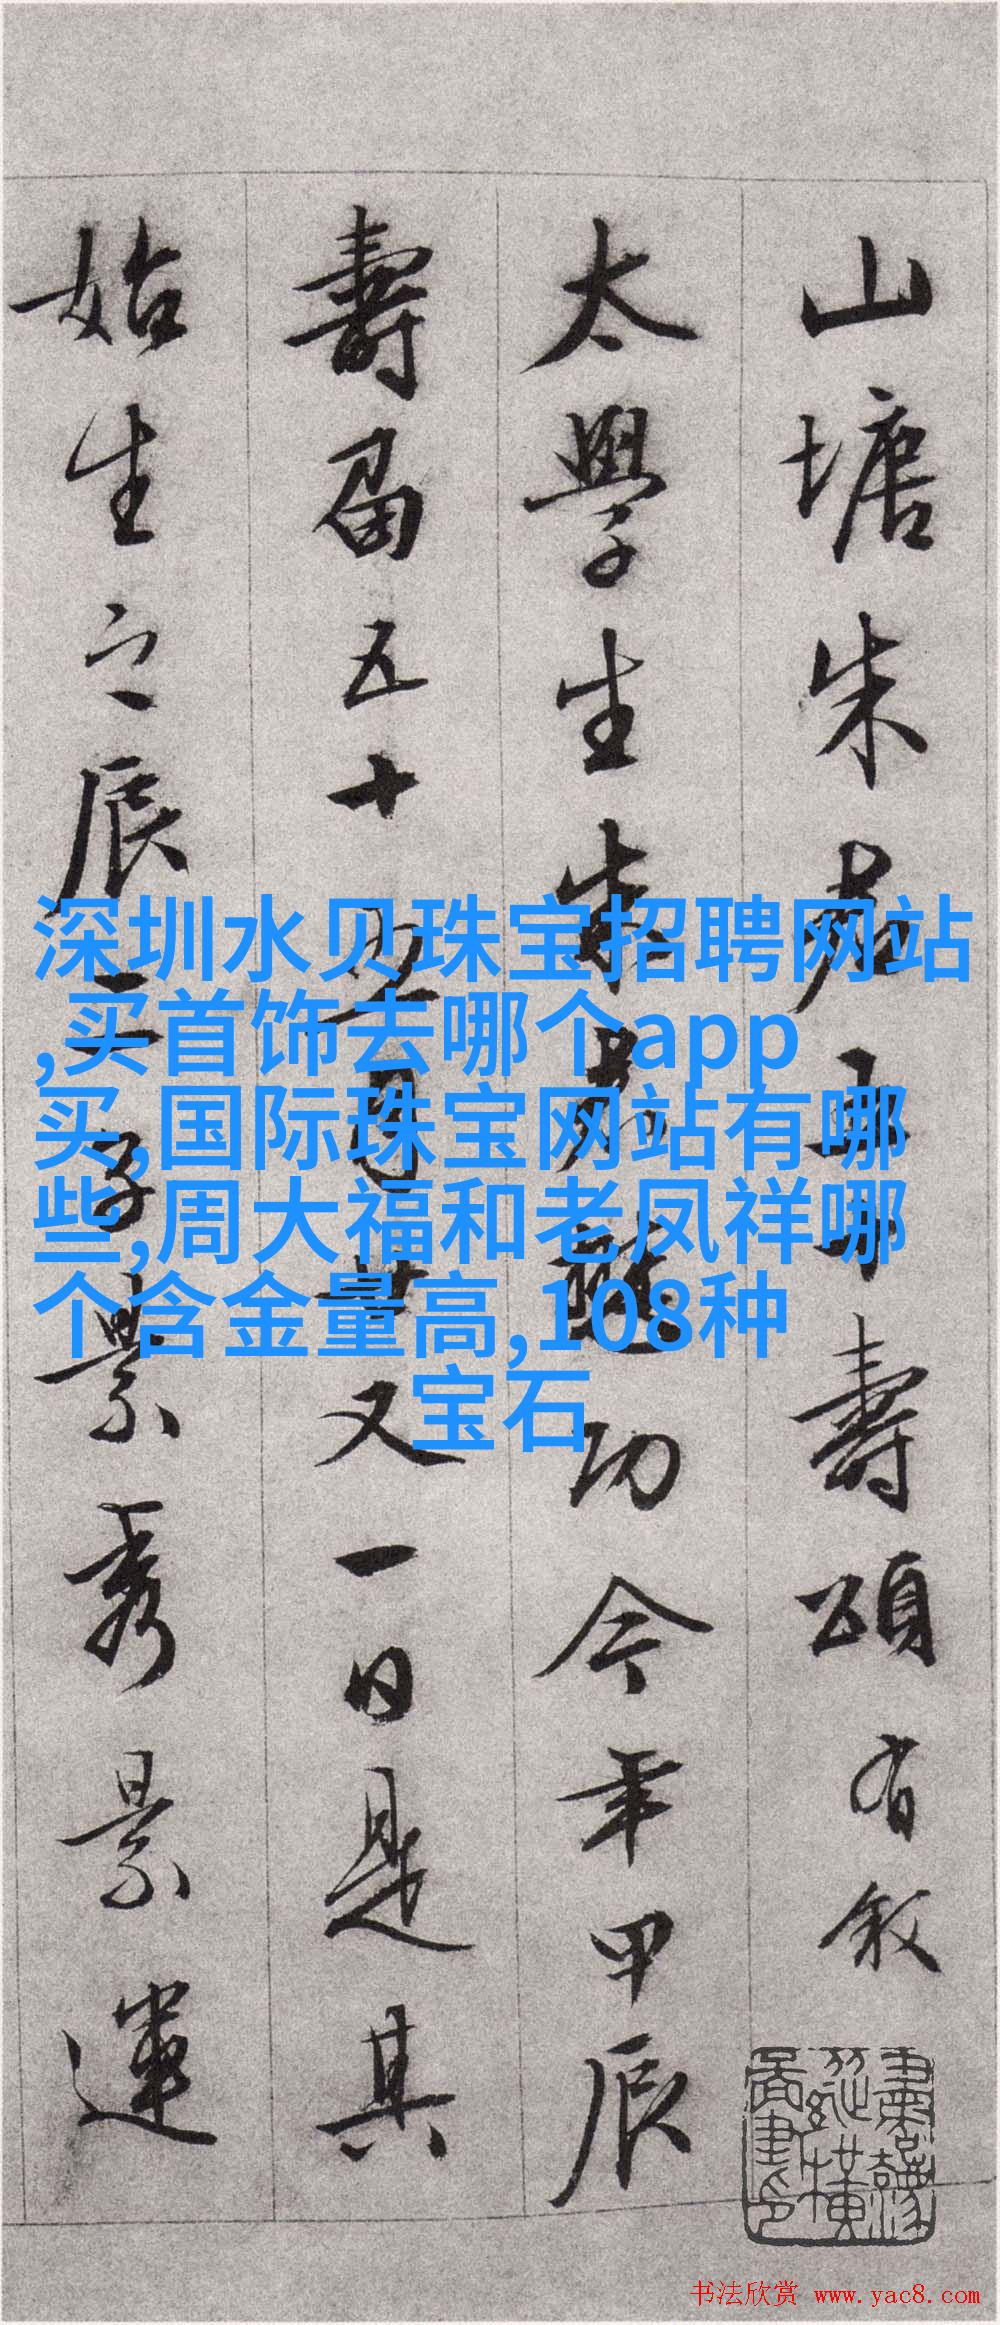 山塘朱君五十壽頌有敘
太學生朱君 功今年甲辰
壽届五十 月 又一日是其
始生之辰 景秀景運
深圳水贝珠宝招聘网站
,买首饰去哪个app
买,国际珠宝网站有哪
些,周大福和老凤祥哪
个含金量高,108种
宝石
书法欣赏 www.yac8.com